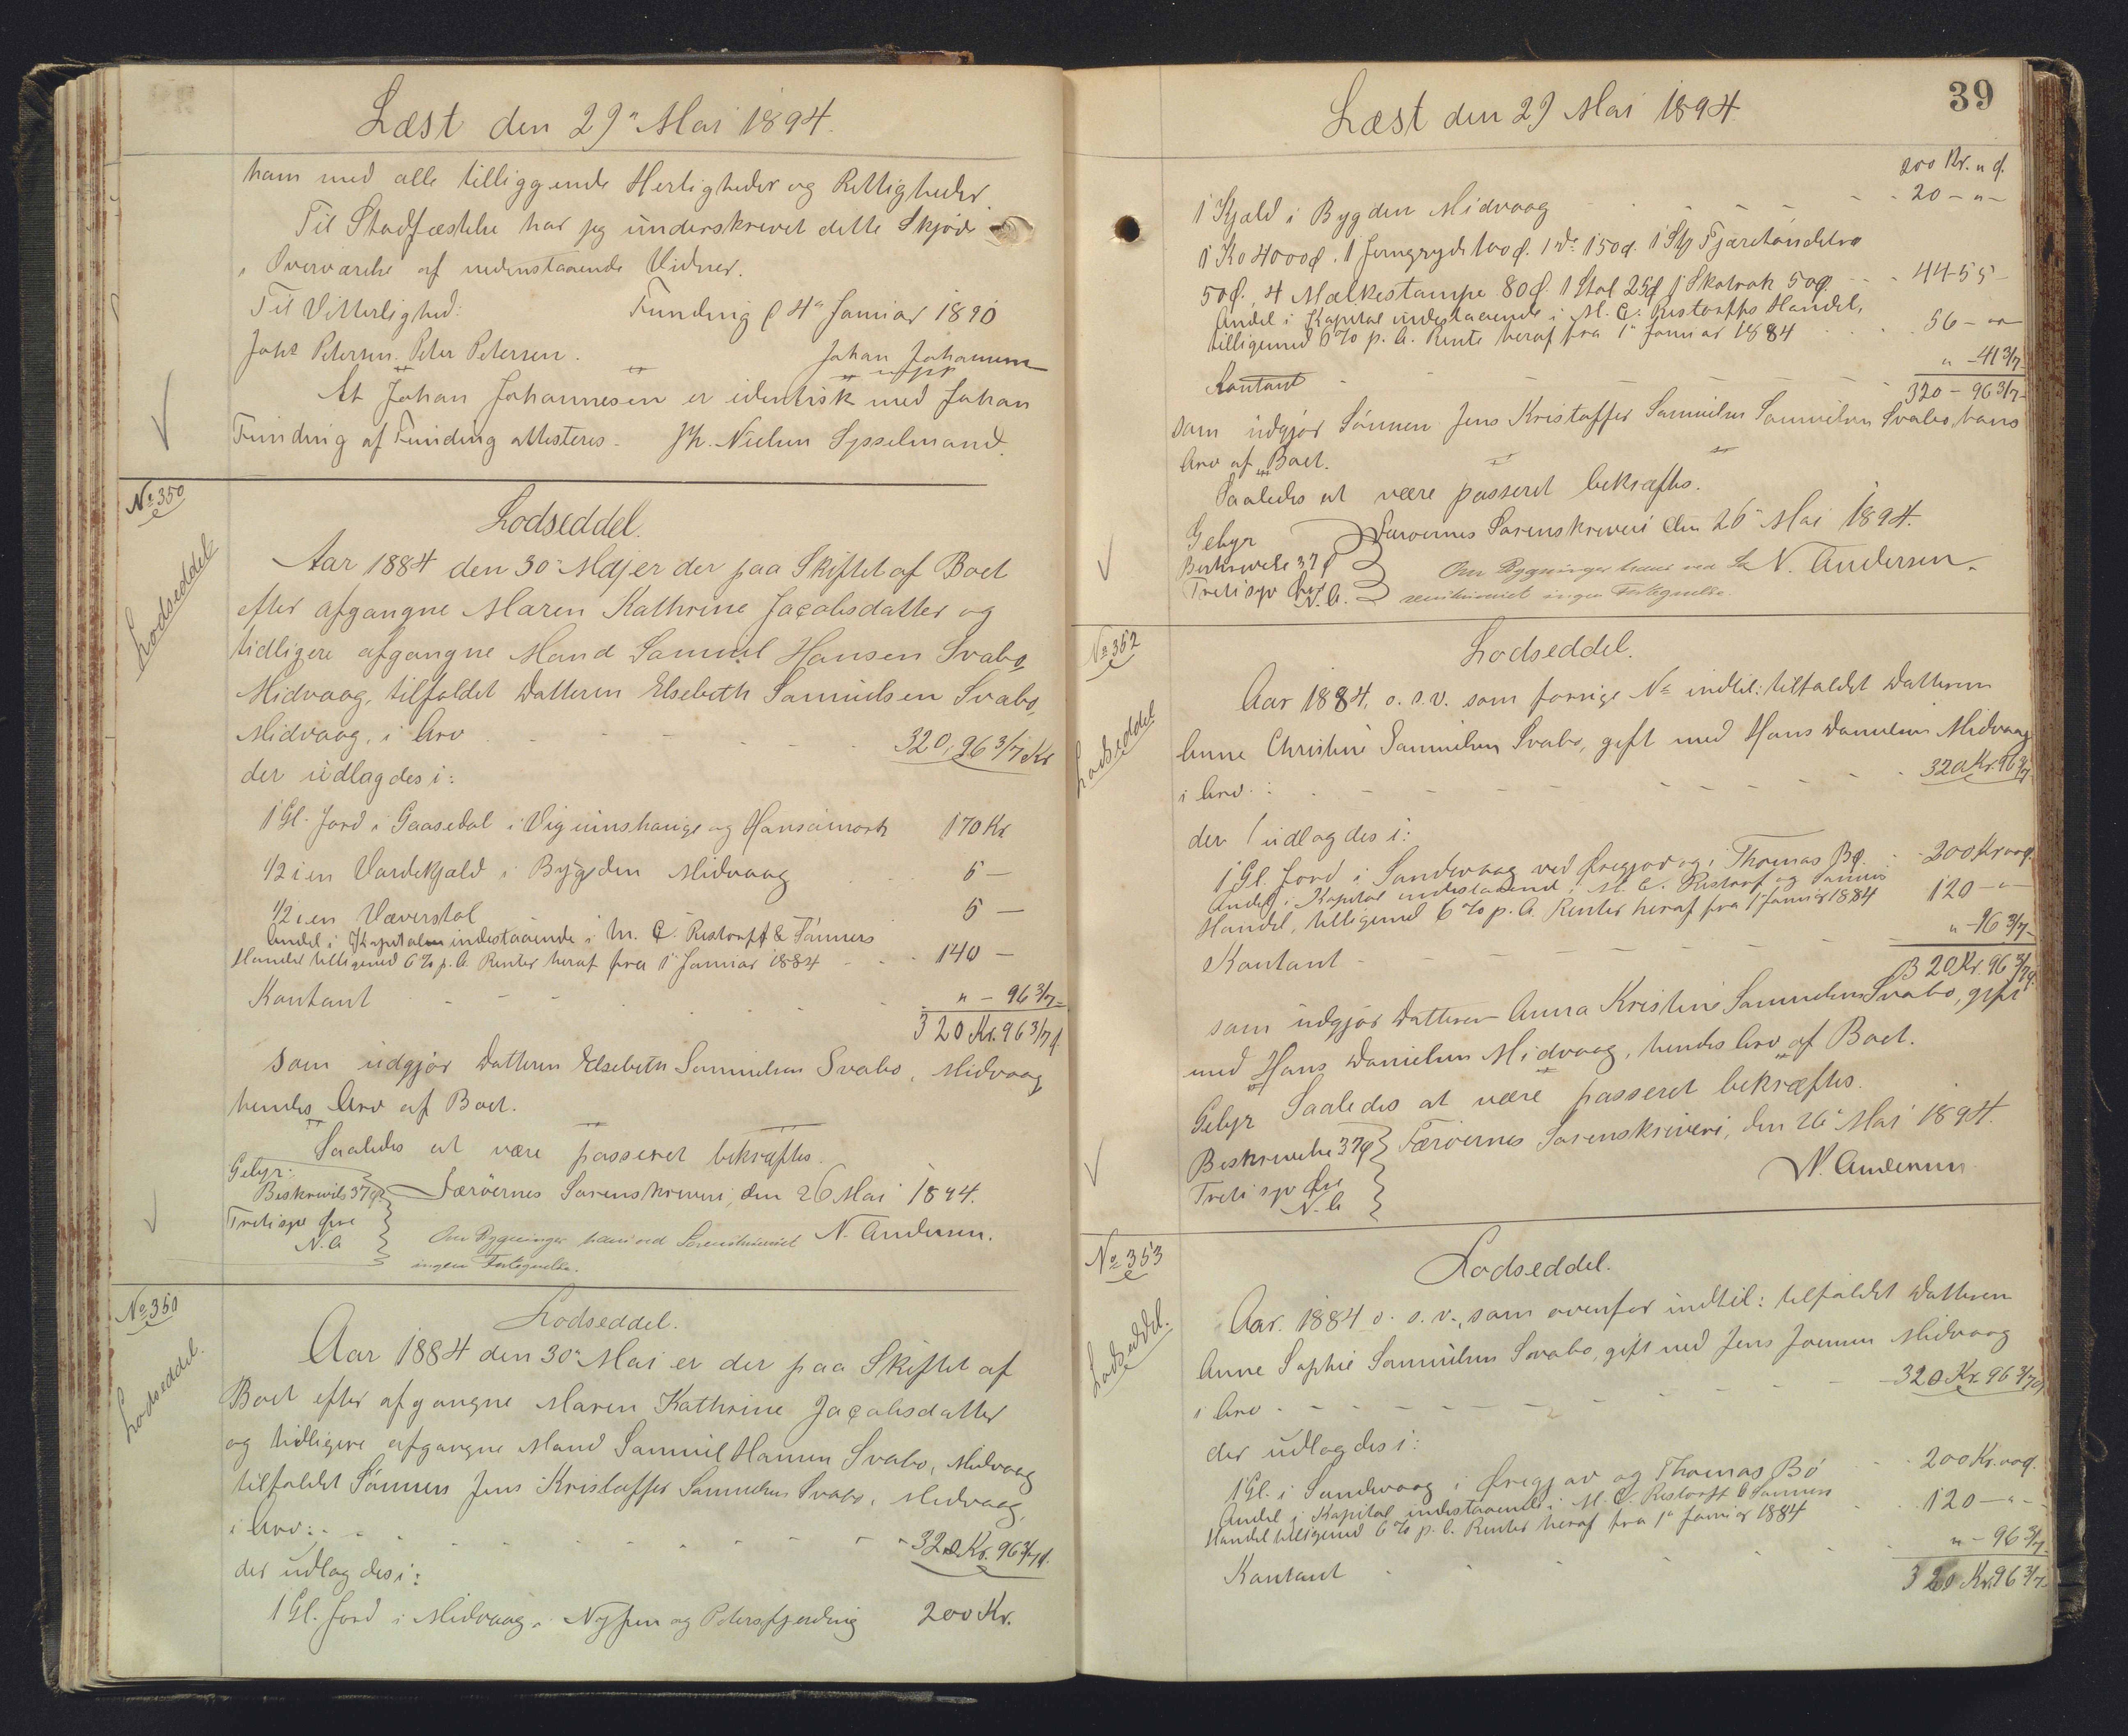 Læst den 29" Mai 1894.
ham med alle tilliggende Herligheder og Rettigheder.
Til Stadfæstelse har jeg underskrevet dette Skjøde
i Overværelse af nedenstaaende Vidner.
Til Vitterlighed: Funding d 4" Januar 1890
Johs Petersen. Peter Petersen. Johan Johannesen
At Johan Johannesen er identisk med Johan
Funding af Funding attesteres. Nielsen Sysselmand.
No 350
Lodseddel
Lodseddel.
Aar 1884 den 30" Maj er der paa Skiftet af Boet
efter afgangne Maren Kathrine Jacobsdatter og
tidligere afgangne Mand Samuel Hansen Svabo
Midvaag, tilfaldet Datteren Elsebeth Samuelsen Svabo,
Midvaag, i Arv - - - 320,96 3/7 Kr
der udlagdes i:
1 Gl. Jord i Gaasedal i og 170 Kr
1/2 i en Vardekjald i Bygden Midvaag 5 —
1/2 i en Væverstol 5 —
Andel i Kapitalen indestaaende i M. C. Restorff & Sønners
Handel tilligemed 6% p. A. Renter heraf fra 1" Januar 1884 - - 140 —
Kontant - - - " - 96 3/7 -
320 Kr. 96 3/7 ø.
som udgjør Datteren Elsebeth Samuelsen Svabo, Midvaag
hendes Arv af Boet.
Saaledes at være passeret bekræftes.
Gebyr:
Beskrivelse 37 ø. Færöernes Sorenskriveri, den 26 Mai 1894.
Tretisyv Øre
N. A. Om Bygninger haves ved Sorenskriveriet N. Andersen.
ingen Fortegnelse.
No 350
Lodseddel.
Lodseddel.
Aar 1884 den 30" Mai er der paa Skiftet af
Boet efter afgangne Maren Kathrine Jacobsdatter
og tidligere afgangne Mand Samuel Hansen Svabo, Midvaag
tilfaldet Sønnen Jens Kristoffer Samuelsen Svabo, Midvaag,
i Arv: - - - 320 Kr. 96 3/7 ø.
der udlagdes i:
1 Gl. Jord i Midvaag i og Petersfjerding 200 Kr.
39
Læst den 29 Mai 1894.
200 Kr. " ø.
1 Kjald i Bygden Midvaag - - - 20 - " -
1 Ko 4000 ø. 1 Jerngryde 100 ø. 1 do 150 ø. 1 Stk
50 ø., 4 Malkestampe 80 ø. 1 Stol 25 ø 1 50 ø. - - 44-55 -
Andel i Kapital indestaaende i M. C. Restorffs Handel,
tilligemed 6% p. A. Rente heraf fra 1" Januar 1884 - - 56 - " -
Kontant - - - " - 41 3/7 -
320 - 96 3/7 -
som udgjør Sønnen Jens Kristoffer Samuelsen Svabo, hans
Arv af Boet.
Saaledes at være passeret bekræftes.
Gebyr Færoernes Sorenskriveri den 26" Mai 1894.
Beskrivelse 37 ø
Tretisyv Øre Om Bygninger haves ved So N. Andersen.
N. A. renskriveriet ingen Fortegnelse.
No 352
Lodseddel
Lodseddel.
Aar 1884, o. s. v. som forrige No indtil: tilfaldet Datteren
Anne Christine Samuelsen Svabo, gift med Hans Danielsen Midvaag
i Arv: - - - 320 Kr. 96 3/7
der udlagdes i:
1 Gl. Jord i Sandevaag ved Øregjov og i Thomas Bø. - - 200 Kr. " ø.
Andel i Kapital indestaaende i M. C. Restorff og Sønners
Handel, tilligemed 6% p. A. Renter heraf fra 1" Januar 1884 120 - " -
Kontant - - - " - 96 3/7 -
320 Kr. 96 3/7 ø.
som udgjør Datteren Anna Kristine Samuelsen Svabo, gift
med Hans Danielsen Midvaag, hendes Arv af Boet.
Gebyr Saaledes at være passeret bekræftes.
Beskrivelse 37 ø Færoernes Sorenskriveri, den 26" Mai 1894.
Tretisyv Øre
N. A. N. Andersen.
No 353
Lodseddel.
Lodseddel.
Aar. 1884 o. s. v., som ovenfor indtil: tilfaldet Datteren
Anne Sophie Samuelsen Svabo, gift med Jens Joensen Midvaag
i Arv - - - 320 Kr. 96 3/7 ø
der udlagdes i:
1 Gl. i Sandevaag i Øregjov og Thomas Bö - - 200 Kr. " ø.
Andel i Kapital indestaaende i M. C. Restorff & Sønners
Handel tilligemed 6% p. A. Renter heraf fra 1" Januar 1884 - - 120 - " -
Kontant - - - " - 96 3/7
320 Kr. 96 3/7